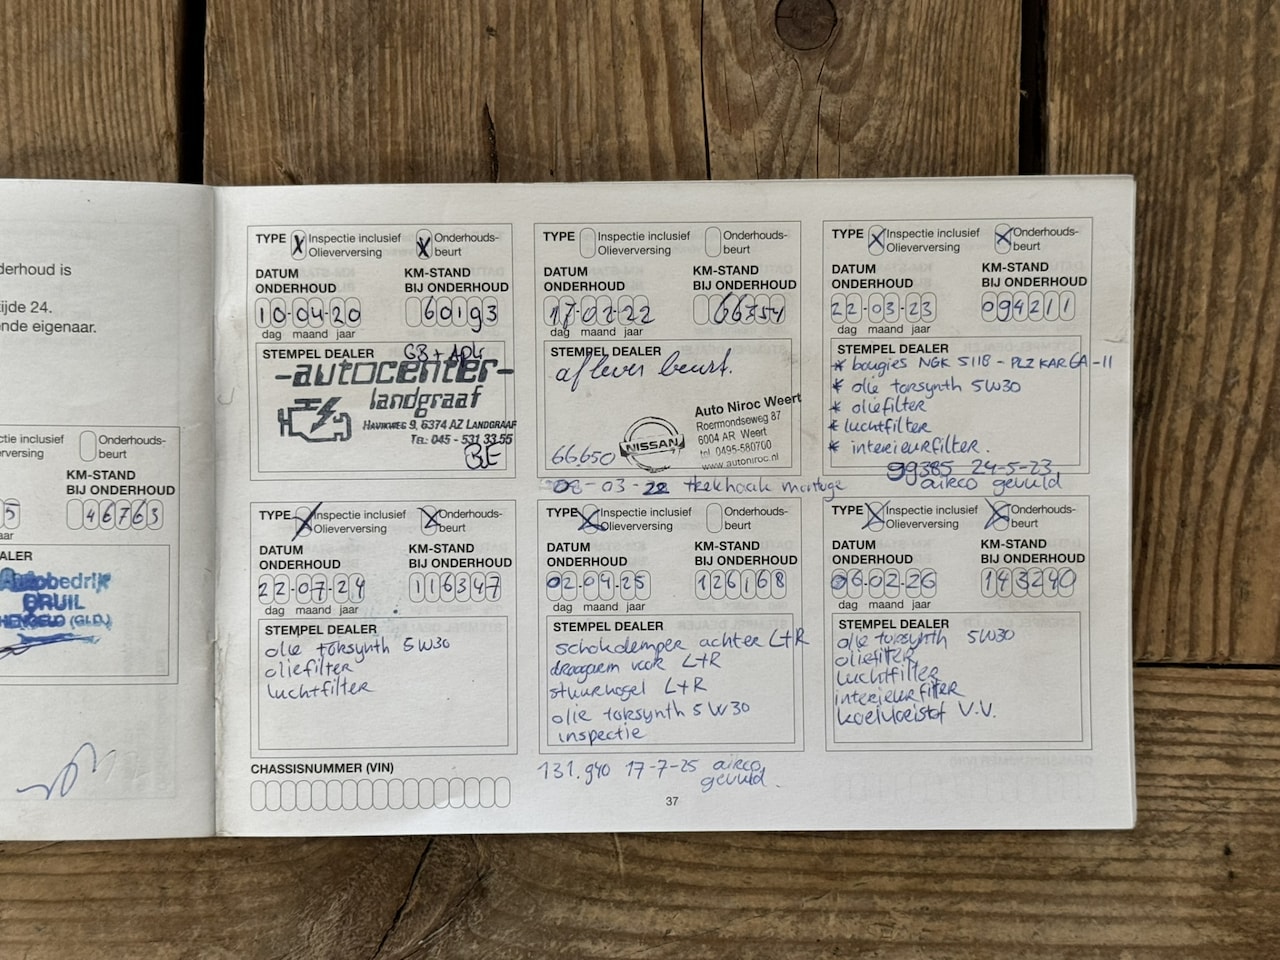 derhoud is
tijde 24.
nde eigenaar.
ctie inclusief
erversing
Onderhouds-
beurt
KM-STAND
BIJ ONDERHOUD
5
46763
aar
ALER
Autobedrijf
BRUIL
HENGELO (GLD.)
TYPE X Inspectie inclusief
Olieverversing
X Onderhouds-
beurt
DATUM
ONDERHOUD
KM-STAND
BIJ ONDERHOUD
10-04-20
60193
dag maand jaar
STEMPEL DEALER
GB + APK
-autocenter-
landgraaf
HAVIKWEG 9, 6374 AZ LANDGRAAF
TEL: 045 - 531 33 55
BE
TYPE Inspectie inclusief
Olieverversing
Onderhouds-
beurt
DATUM
ONDERHOUD
KM-STAND
BIJ ONDERHOUD
17-02-22
66754
dag maand jaar
STEMPEL DEALER
aflever beurt.
66.650
NISSAN
Auto Niroc Weert
Roermondseweg 87
6004 AR Weert
tel. 0495-580700
www.autoniroc.nl
08-03-22 trekhaak montage
TYPE X Inspectie inclusief
Olieverversing
X Onderhouds-
beurt
DATUM
ONDERHOUD
KM-STAND
BIJ ONDERHOUD
22-03-23
094211
dag maand jaar
STEMPEL DEALER
* bougies NGK 5118 - PLZKAR6A-11
* olie torsynth 5W30
* oliefilter
* luchtfilter
* interieurfilter.
99385 24-5-23
airco gevuld
TYPE X Inspectie inclusief
Olieverversing
X Onderhouds-
beurt
DATUM
ONDERHOUD
KM-STAND
BIJ ONDERHOUD
22-07-24
116347
dag maand jaar
STEMPEL DEALER
olie torsynth 5W30
oliefilter
luchtfilter
CHASSISNUMMER (VIN)
TYPE X Inspectie inclusief
Olieverversing
Onderhouds-
beurt
DATUM
ONDERHOUD
KM-STAND
BIJ ONDERHOUD
02-04-25
126168
dag maand jaar
STEMPEL DEALER
schokdemper achter L+R
draagarm voor L+R
stuurkogel L+R
olie torsynth 5W30
inspectie
131.940 17-7-25 airco
gevuld.
TYPE X Inspectie inclusief
Olieverversing
X Onderhouds-
beurt
DATUM
ONDERHOUD
KM-STAND
BIJ ONDERHOUD
06-02-26
143240
dag maand jaar
STEMPEL DEALER
olie torsynth 5W30
oliefilter
luchtfilter
interieurfilter
koelvloeistof V.V.
37